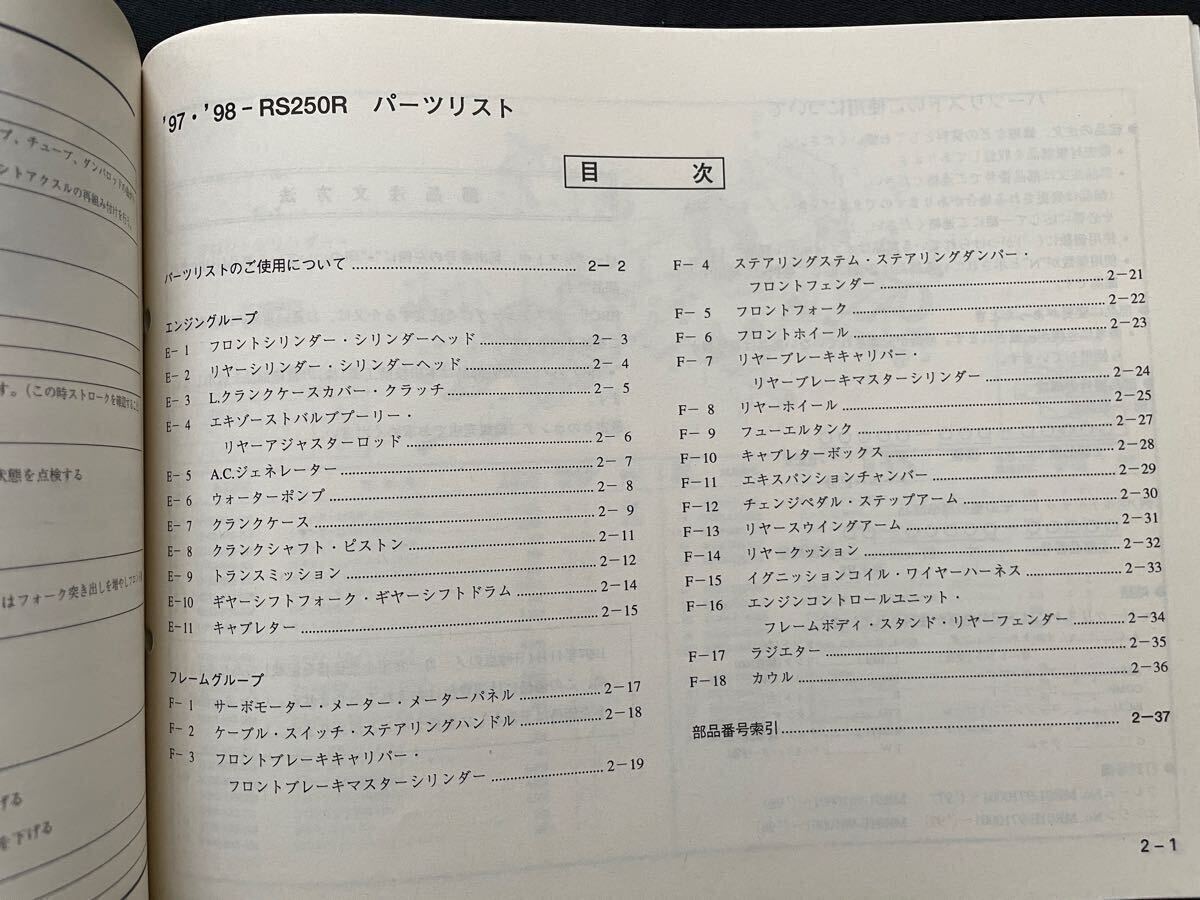 プ、チューブ、ダンパロッド
ントアクスルの再組み付けを行う。
す。(この時ストロークを確認する
状態を点検する
はフォーク突き出しを増やし
げる
を下げる
'97・'98－RS250R パーツリスト
目 次
パーツリストのご使用について 2－2
エンジングループ
E－1 フロントシリンダー・シリンダーヘッド 2－3
E－2 リヤーシリンダー・シリンダーヘッド 2－4
E－3 L.クランクケースカバー・クラッチ 2－5
E－4 エキゾーストバルブプーリー・
リヤーアジャスターロッド 2－6
E－5 A.C.ジェネレーター 2－7
E－6 ウォーターポンプ 2－8
E－7 クランクケース 2－9
E－8 クランクシャフト・ピストン 2－11
E－9 トランスミッション 2－12
E－10 ギヤーシフトフォーク・ギヤーシフトドラム 2－14
E－11 キャブレター 2－15
フレームグループ
F－1 サーボモーター・メーター・メーターパネル 2－17
F－2 ケーブル・スイッチ・ステアリングハンドル 2－18
F－3 フロントブレーキキャリパー・
フロントブレーキマスターシリンダー 2－19
F－4 ステアリングステム・ステアリングダンパー・
フロントフェンダー 2－21
F－5 フロントフォーク 2－22
F－6 フロントホイール 2－23
F－7 リヤーブレーキキャリパー・
リヤーブレーキマスターシリンダー 2－24
F－8 リヤーホイール 2－25
F－9 フューエルタンク 2－27
F－10 キャブレターボックス 2－28
F－11 エキスパンションチャンバー 2－29
F－12 チェンジペダル・ステップアーム 2－30
F－13 リヤースウイングアーム 2－31
F－14 リヤークッション 2－32
F－15 イグニッションコイル・ワイヤーハーネス 2－33
F－16 エンジンコントロールユニット・
フレームボディ・スタンド・リヤーフェンダー 2－34
F－17 ラジエター 2－35
F－18 カウル 2－36
部品番号索引 2－37
2－1